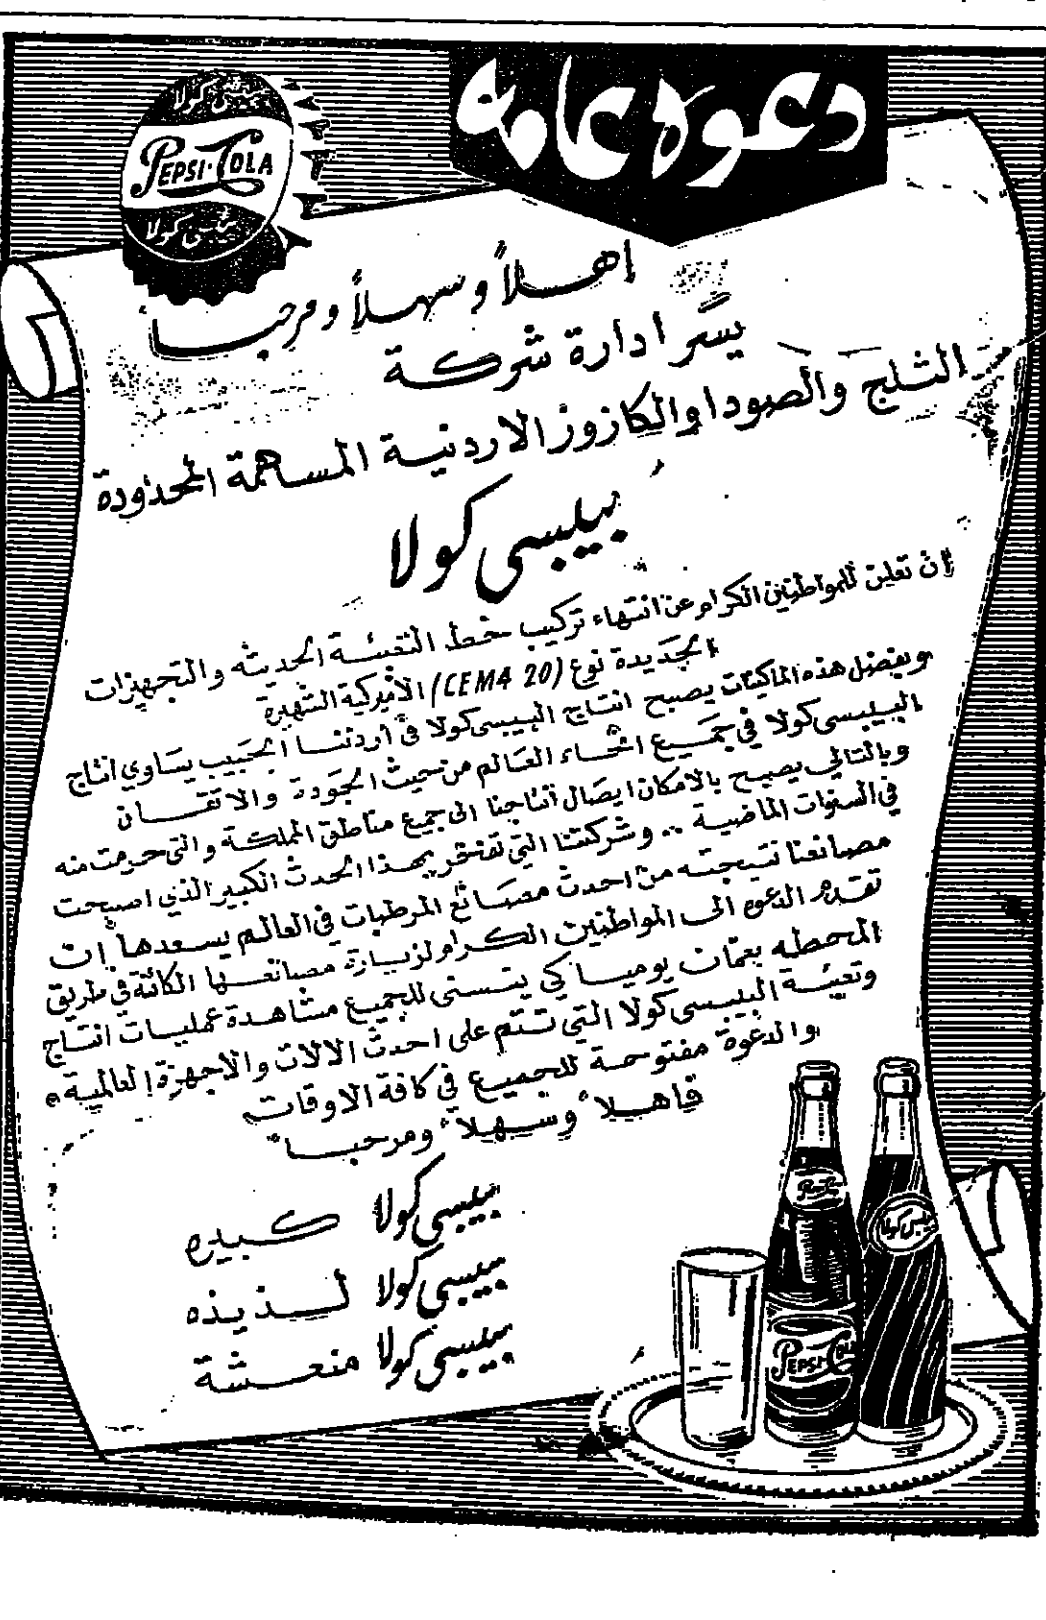 دعوة عامة
بيبسي كولا
PEPSI-COLA
بيبسي كولا
اهلاً وسهلاً ومرحباً
يسر ادارة شركة
الثلج والصودا والكازوز الاردنية المساهمة المحدودة
بيبسي كولا
ان تعلن للمواطنين الكرام عن انتهاء تركيب خط التعبئة الحديثه والتجهيزات
الجديدة نوع (CEM4 20) الاميركية الشهيرة
وبفضل هذه الماكينات يصبح انتاج البيبسي كولا في أردننا الحبيب يساوي انتاج
البيبسي كولا في جميع انحاء العالم من حيث الجودة والاتقان
وبالتالي يصبح بالامكان ايصال انتاجنا الى جميع مناطق المملكة والتي حرمت منه
في السنوات الماضية .. وشركتنا التي تفتخر بهذا الحدث الكبير الذي اصبحت
مصانعنا نتيجته من احدث مصانع المرطبات في العالم يسعدها أن
تقدم الدعوه الى المواطنين الكرام لزيارة مصانعها الكائنة في طريق
المحطه بعمان يوميا كي يتسنى للجميع مشاهدة عمليات انتاج
وتعبئة البيبسي كولا التي تتم على احدث الالات والاجهزة العالمية.
والدعوة مفتوحة للجميع في كافة الاوقات
فاهلا" وسهلا" ومرحبا"
بيبسي كولا كبيره
بيبسي كولا لذيذه
بيبسي كولا منعشة
بيبسي كولا
PEPSI-COLA